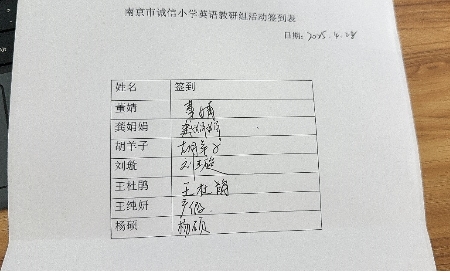 南京市诚信小学英语教研组活动签到表
日期: 2025.4.28
姓名 签到
董婧 董婧
龚娟娟 龚娟娟
胡芊子 胡芊子
刘璇 刘璇
王杜鹃 王杜鹃
王纯妍
杨硕 杨硕